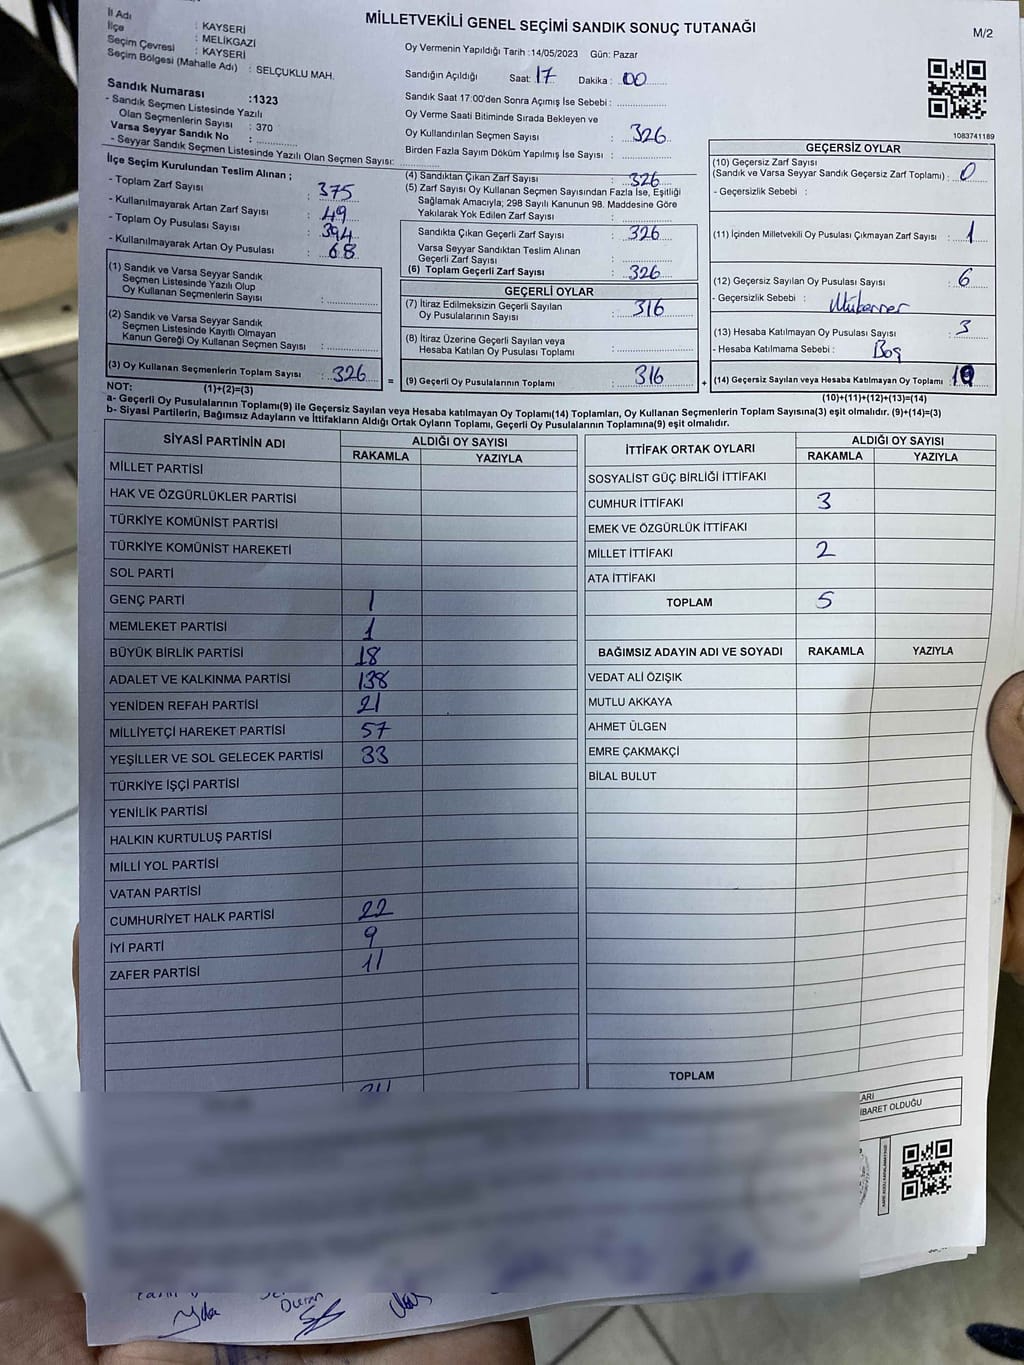 MİLLETVEKİLİ GENEL SEÇİMİ SANDIK SONUÇ TUTANAĞI
M/2
İl Adı : KAYSERİ
İlçe : MELİKGAZİ
Seçim Çevresi : KAYSERİ
Seçim Bölgesi (Mahalle Adı) : SELÇUKLU MAH.
Sandık Numarası :1323
- Sandık Seçmen Listesinde Yazılı
Olan Seçmenlerin Sayısı : 370
Varsa Seyyar Sandık No :
- Seyyar Sandık Seçmen Listesinde Yazılı Olan Seçmen Sayısı:
Oy Vermenin Yapıldığı Tarih :14/05/2023 Gün: Pazar
Sandığın Açıldığı Saat: 17 Dakika : 00
Sandık Saat 17:00'den Sonra Açımış İse Sebebi :
Oy Verme Saati Bitiminde Sırada Bekleyen ve
Oy Kullandırılan Seçmen Sayısı : 326
Birden Fazla Sayım Döküm Yapılmış İse Sayısı :
1083741189
İlçe Seçim Kurulundan Teslim Alınan ;
- Toplam Zarf Sayısı : 375
- Kullanılmayarak Artan Zarf Sayısı : 49
- Toplam Oy Pusulası Sayısı : 394
- Kullanılmayarak Artan Oy Pusulası : 68
(1) Sandık ve Varsa Seyyar Sandık
Seçmen Listesinde Yazılı Olup
Oy Kullanan Seçmenlerin Sayısı :
(2) Sandık ve Varsa Seyyar Sandık
Seçmen Listesinde Kayıtlı Olmayan
Kanun Gereği Oy Kullanan Seçmen Sayısı :
(3) Oy Kullanan Seçmenlerin Toplam Sayısı : 326
(1)+(2)=(3)
(4) Sandıktan Çıkan Zarf Sayısı : 326
(5) Zarf Sayısı Oy Kullanan Seçmen Sayısından Fazla İse, Eşitliği
Sağlamak Amacıyla; 298 Sayılı Kanunun 98. Maddesine Göre
Yakılarak Yok Edilen Zarf Sayısı :
Sandıkta Çıkan Geçerli Zarf Sayısı : 326
Varsa Seyyar Sandıktan Teslim Alınan
Geçerli Zarf Sayısı :
(6) Toplam Geçerli Zarf Sayısı : 326
GEÇERLİ OYLAR
(7) İtiraz Edilmeksizin Geçerli Sayılan
Oy Pusulalarının Sayısı : 316
(8) İtiraz Üzerine Geçerli Sayılan veya
Hesaba Katılan Oy Pusulası Toplamı :
= (9) Geçerli Oy Pusulalarının Toplamı : 316 +
GEÇERSİZ OYLAR
(10) Geçersiz Zarf Sayısı
(Sandık ve Varsa Seyyar Sandık Geçersiz Zarf Toplamı) : 0
- Geçersizlik Sebebi :
(11) İçinden Milletvekili Oy Pusulası Çıkmayan Zarf Sayısı : 1
(12) Geçersiz Sayılan Oy Pusulası Sayısı : 6
- Geçersizlik Sebebi : Mükerrer
(13) Hesaba Katılmayan Oy Pusulası Sayısı : 3
- Hesaba Katılmama Sebebi : Boş
(14) Geçersiz Sayılan veya Hesaba Katılmayan Oy Toplamı : 10
(10)+(11)+(12)+(13)=(14)
NOT:
a- Geçerli Oy Pusulalarının Toplamı(9) ile Geçersiz Sayılan veya Hesaba katılmayan Oy Toplamı(14) Toplamları, Oy Kullanan Seçmenlerin Toplam Sayısına(3) eşit olmalıdır. (9)+(14)=(3)
b- Siyasi Partilerin, Bağımsız Adayların ve İttifakların Aldığı Ortak Oyların Toplamı, Geçerli Oy Pusulalarının Toplamına(9) eşit olmalıdır.
SİYASİ PARTİNİN ADI ALDIĞI OY SAYISI
RAKAMLA YAZIYLA
MİLLET PARTİSİ
HAK VE ÖZGÜRLÜKLER PARTİSİ
TÜRKİYE KOMÜNİST PARTİSİ
TÜRKİYE KOMÜNİST HAREKETİ
SOL PARTİ
GENÇ PARTİ 1
MEMLEKET PARTİSİ 1
BÜYÜK BİRLİK PARTİSİ 18
ADALET VE KALKINMA PARTİSİ 138
YENİDEN REFAH PARTİSİ 21
MİLLİYETÇİ HAREKET PARTİSİ 57
YEŞİLLER VE SOL GELECEK PARTİSİ 33
TÜRKİYE İŞÇİ PARTİSİ
YENİLİK PARTİSİ
HALKIN KURTULUŞ PARTİSİ
MİLLİ YOL PARTİSİ
VATAN PARTİSİ
CUMHURİYET HALK PARTİSİ 22
İYİ PARTİ 9
ZAFER PARTİSİ 11
İTTİFAK ORTAK OYLARI ALDIĞI OY SAYISI
RAKAMLA YAZIYLA
SOSYALİST GÜÇ BİRLİĞİ İTTİFAKI
CUMHUR İTTİFAKI 3
EMEK VE ÖZGÜRLÜK İTTİFAKI
MİLLET İTTİFAKI 2
ATA İTTİFAKI
TOPLAM 5
BAĞIMSIZ ADAYIN ADI VE SOYADI RAKAMLA YAZIYLA
VEDAT ALİ ÖZIŞIK
MUTLU AKKAYA
AHMET ÜLGEN
EMRE ÇAKMAKÇİ
BİLAL BULUT
TOPLAM
İBARET OLDUĞU